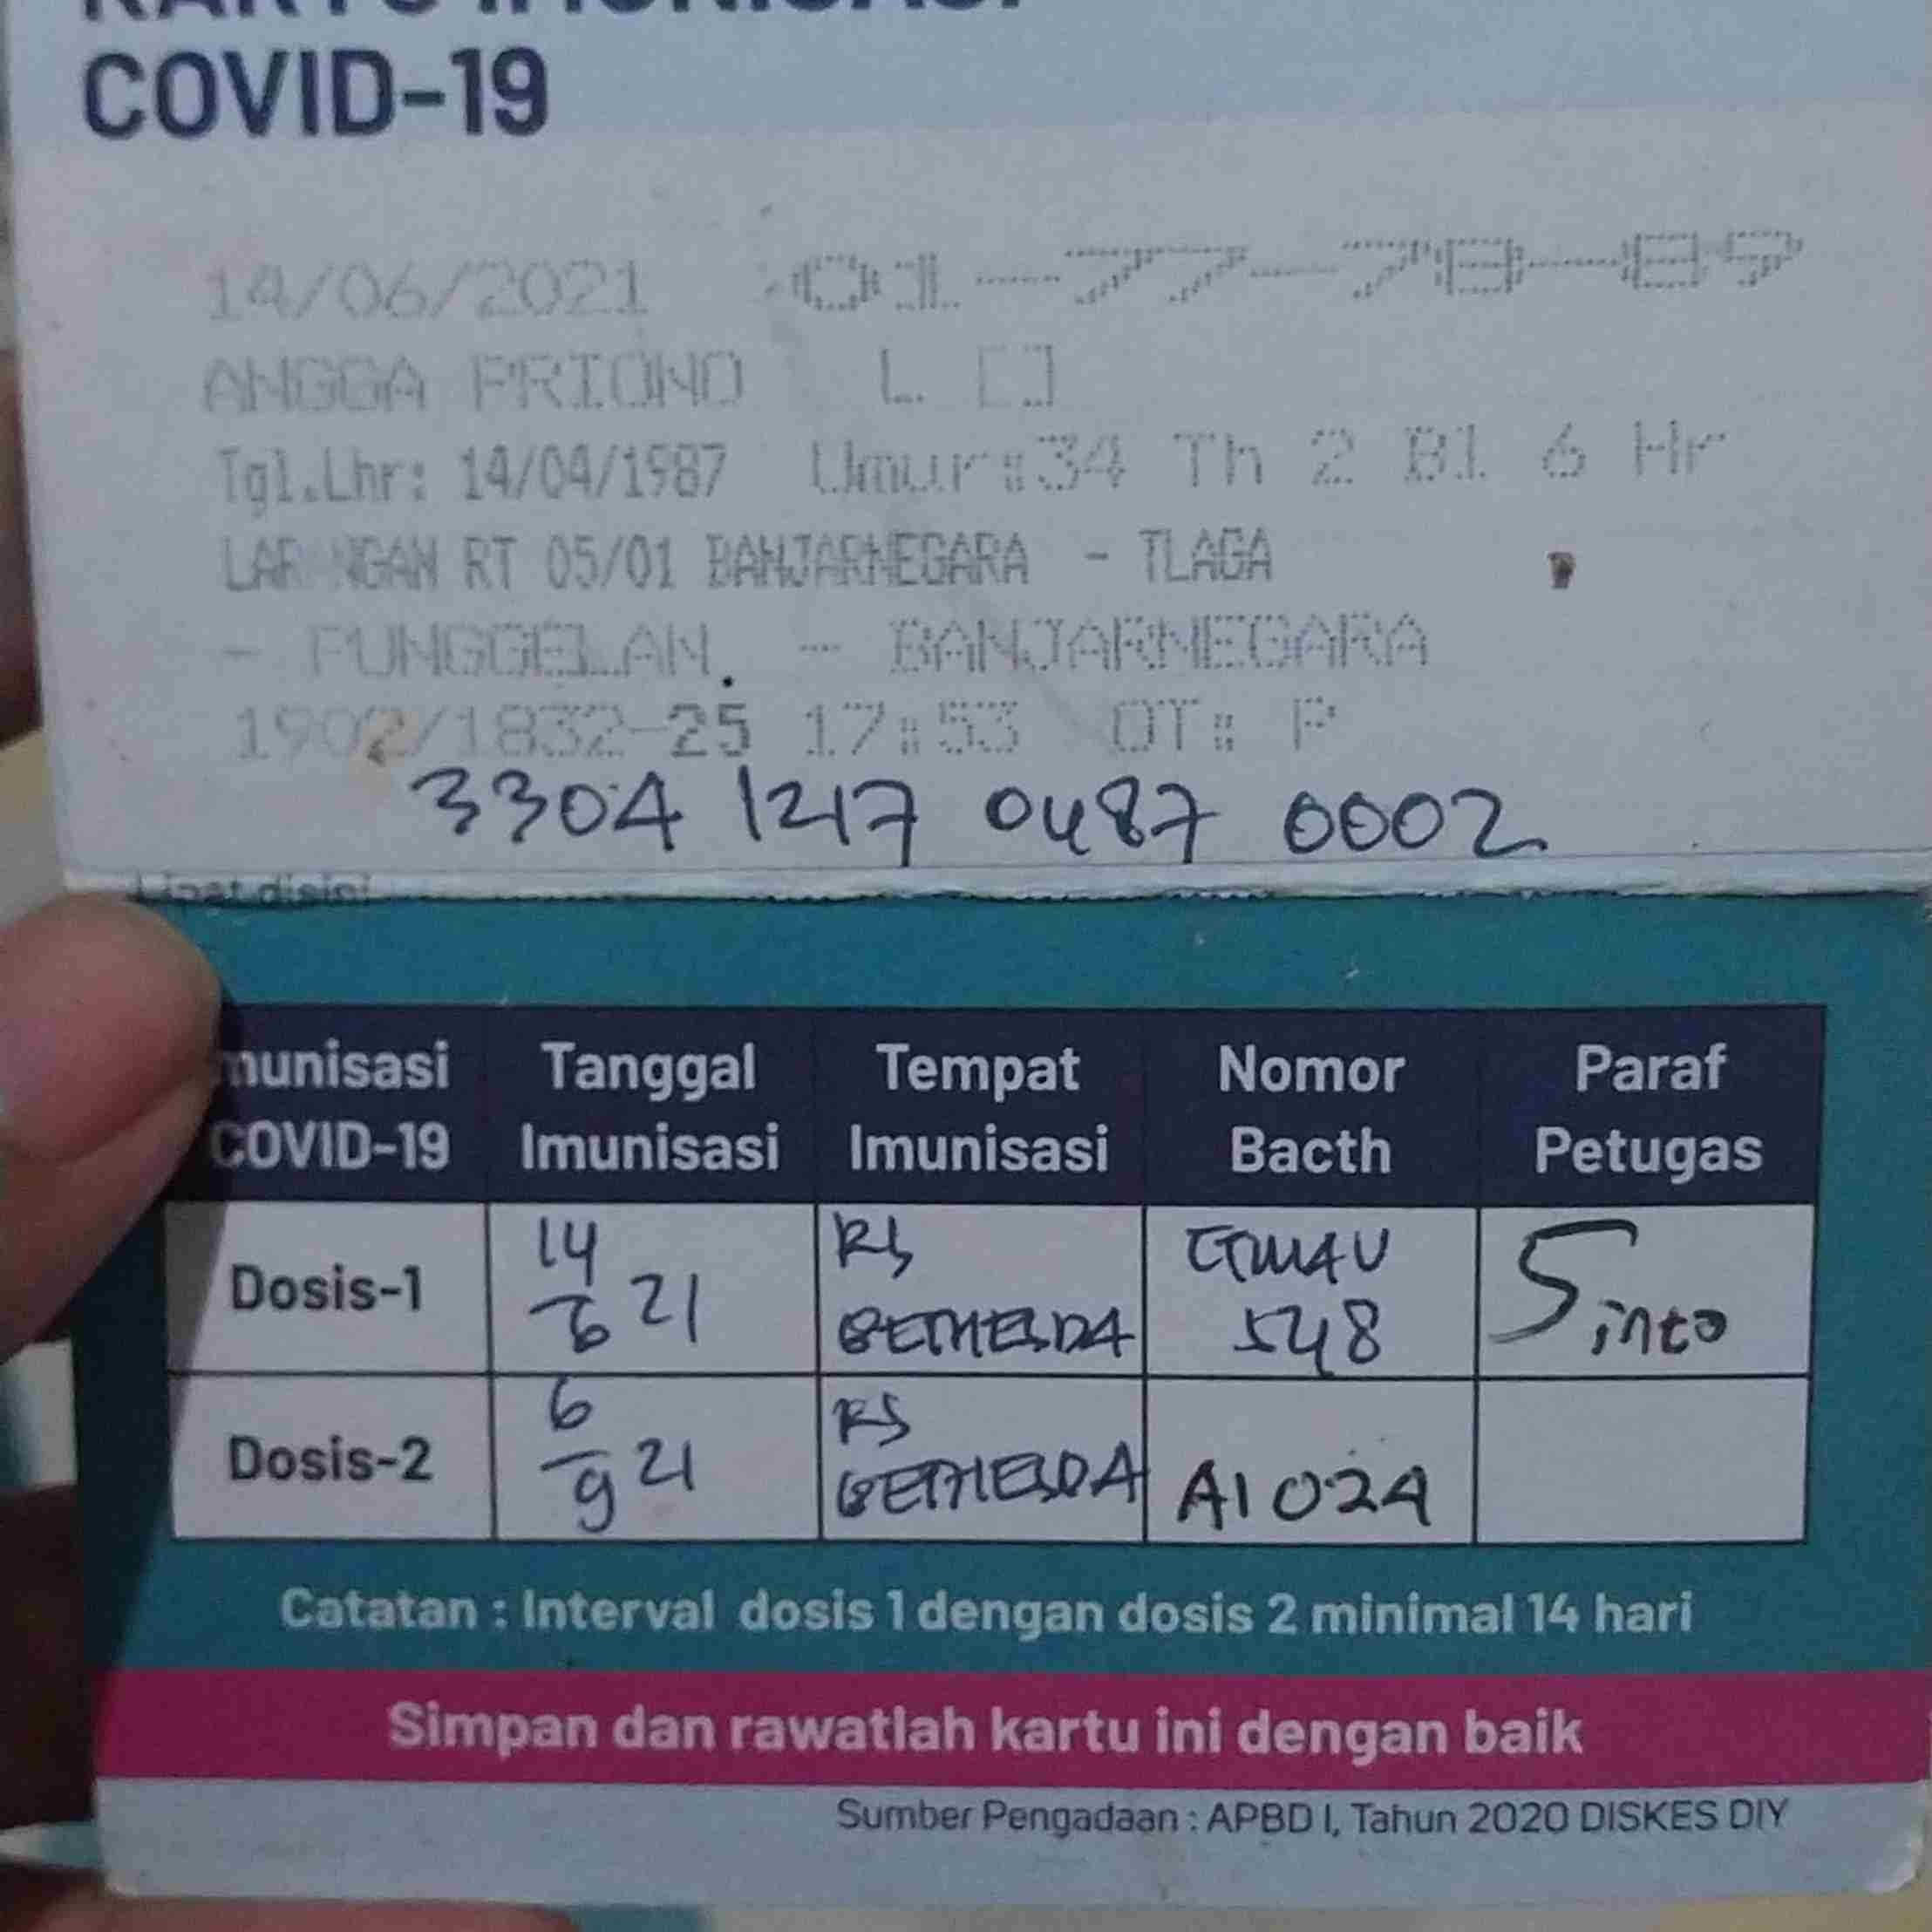 KARTU IMUNISASI
COVID-19
14/06/2021 01-77-78-89
ANGGA PRIONO L []
Tgl.Lhr: 14/04/1987 Umur:34 Th 2 Bl 6 Hr
LAR NGAN RT 05/01 BANJARNEGARA - TLAGA
- PUNGGELAN. - BANJARNEGARA
1902/1832-25 17:53 OT: P
3304 1217 0487 0002
Lipat disini
munisasi COVID-19 Tanggal Imunisasi Tempat Imunisasi Nomor Bacth Paraf Petugas
Dosis-1 14/6 21 RS BETHESDA 548 Sinto
Dosis-2 6/9 21 RS BETHESDA A1024
Catatan : Interval dosis 1 dengan dosis 2 minimal 14 hari
Simpan dan rawatlah kartu ini dengan baik
Sumber Pengadaan : APBD I, Tahun 2020 DISKES DIY